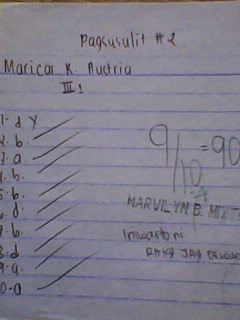 Pagsusulit # 2
Maricar R. Austria
III 1
1-d x
2-b.
3-a
4-b.
5-b.
6-d.
7-b.
8-d
9-a.
10-a
9/10 = 90
MARVILYN B.
Iniwasto ni
JAY